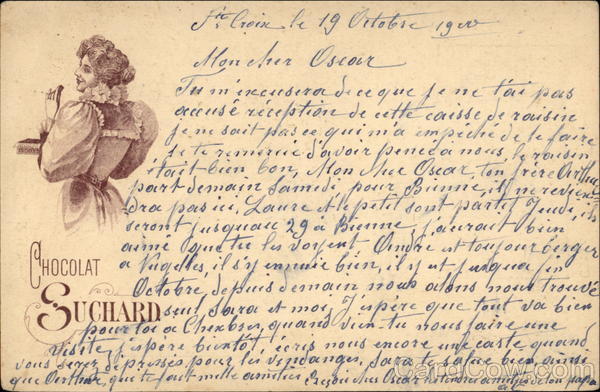 Ste Croix le 19 Octobre 1900
Mon cher Oscar
Tu m'excusera de ce que je ne t'ai pas
accusé réception de cette caisse de raisin
je ne sait pas ce qui m'a empeché de le faire
je te remercie d'avoir pensé à nous, le raisin
était bien bon, Mon cher Oscar, ton frère Arthur
part demain Samedi, pour Bienne, il ne reviendra
dra pas ici, Laure et le petit sont parti Jeudi, ils
seront jusquau 29 à Bienne, j'aurait bien
aimé que tu les voyent André est toujour berger
a Vugelles, il s'y ennuie bien, il y est jusqua fin
Octobre, depuis demain nous alons nous trouvé
seul Sara et moi, J'espère que tout va bien
pour toi a Chexbres, quand vien tu nous faire une
visite, j'espère bientôt, écris nous encore une carte quand
vous serez dépressés pour les vendanges, Sara te salue bien ainsi
que Berthe, que te fait mille amitiés
Reçoi cher Oscar nos tendres amitiés de ton papa
CHOCOLAT
SUCHARD
CardCow.com